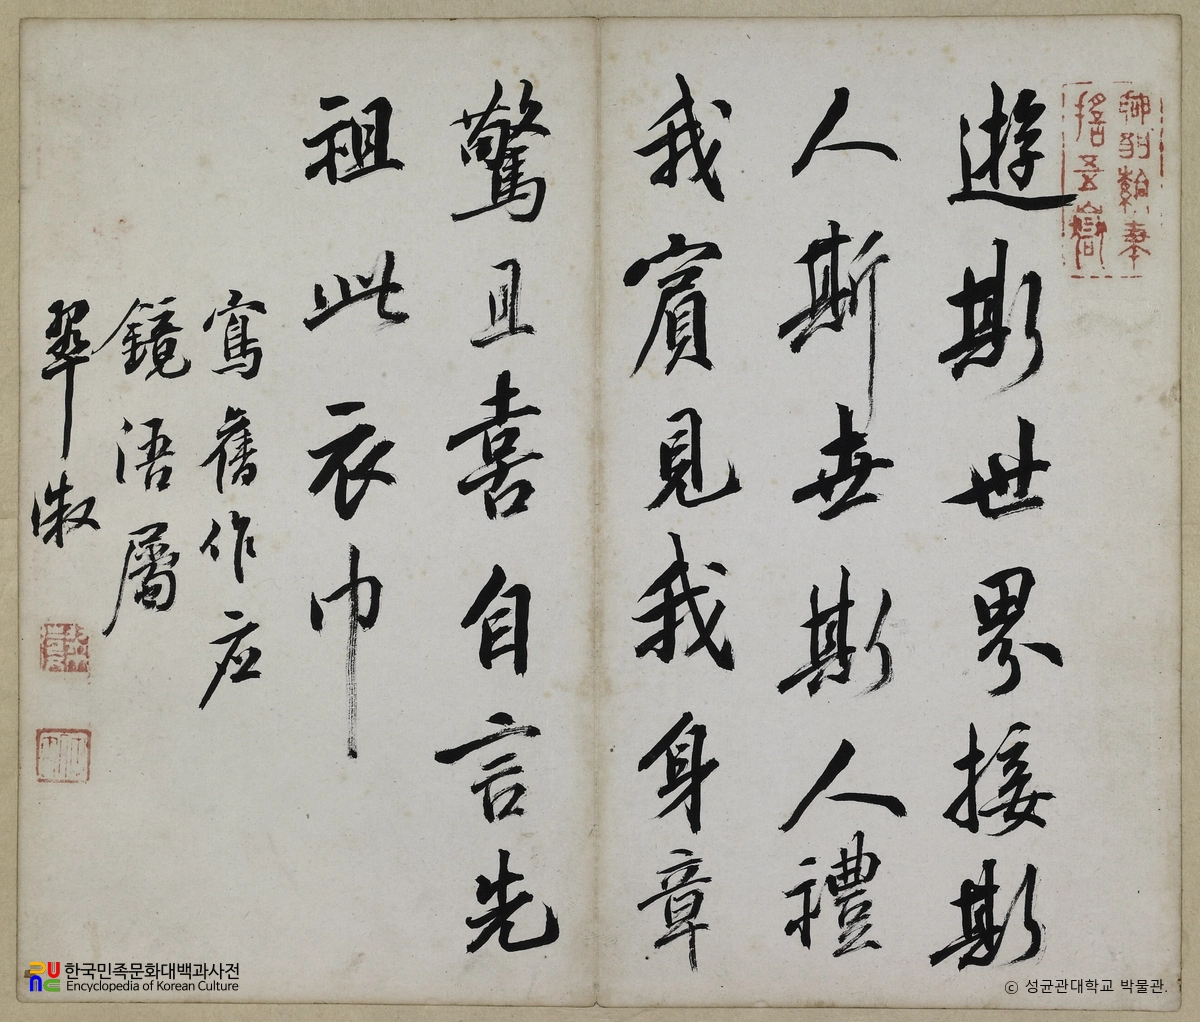 遊斯世界接斯
人斯世斯人禮
我賓見我身章
驚且喜自言先
祖此衣巾
寫舊作应
鏡浯屬
翠淑
한국민족문화대백과사전
Encyclopedia of Korean Culture
ⓒ 성균관대학교 박물관.